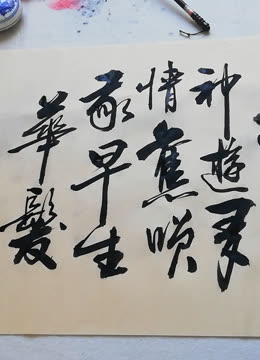 神遊多
情應咲
我早生
華髮